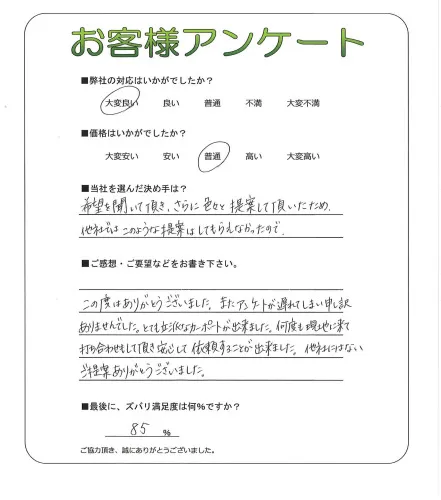 お客様アンケート
■弊社の対応はいかがでしたか?
大変良い 良い 普通 不満 大変不満
■価格はいかがでしたか?
大変安い 安い 普通 高い 大変高い
■当社を選んだ決め手は?
希望を聞いて頂き、さらに色々と提案して頂いたため、
他社ではこのような提案はしてもらえなかったので。
■ご感想・ご要望などをお書き下さい。
この度はありがとうございました。またアンケートが遅れてしまい申し訳
ありませんでした。とても立派なカーポートが出来ました。何度も現地に来て
打ち合わせもして頂き安心して依頼することが出来ました。他社にはない
ご提案ありがとうございました。
■最後に、ズバリ満足度は何%ですか?
85 %
ご協力頂き、誠にありがとうございました。